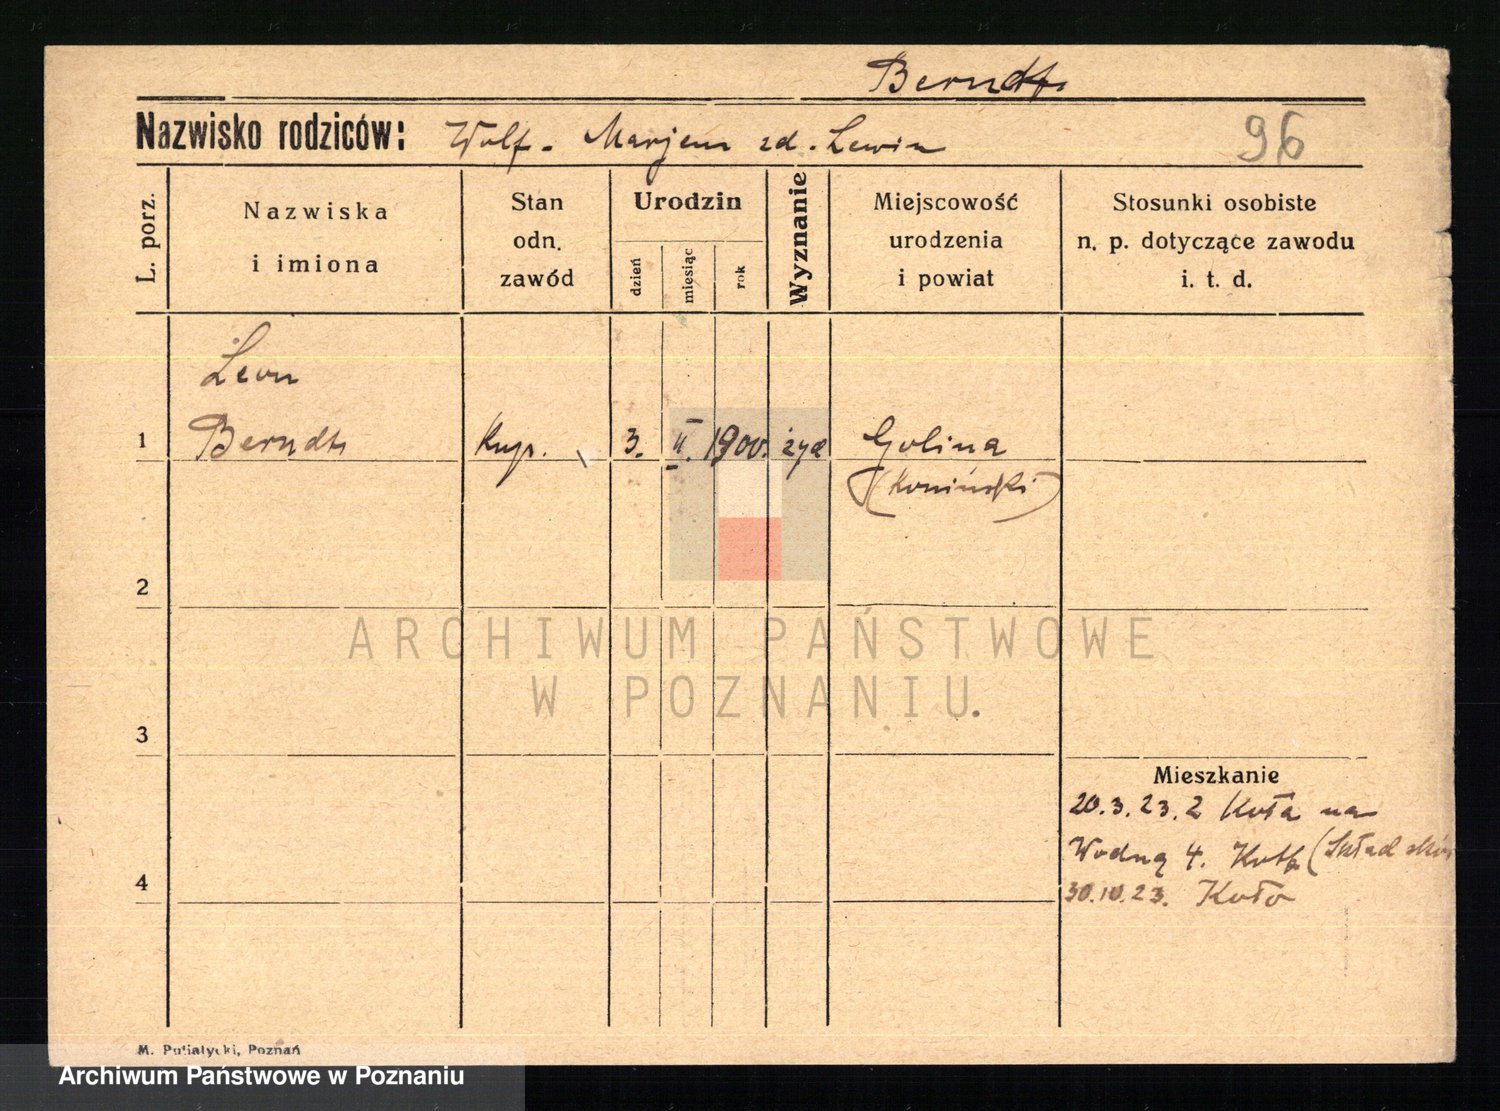 Berndt
Nazwisko rodziców: Wolf - Marjem zd. Lewin 96
L. porz.
Nazwiska
i imiona
Stan
odn.
zawód
Urodzin
dzień
miesiąc
rok
Wyznanie
Miejscowość
urodzenia
i powiat
Stosunki osobiste
n. p. dotyczące zawodu
i. t. d.
Leon
1 Berndt Kup. 3. II. 1900. żyd Golina
(Koniński)
2
ARCHIWUM PAŃSTWOWE
W POZNANIU.
3
Mieszkanie
20.3.23. z Koła na
Wodną 4. (Skład skór
4 30.10.23. Koło
M. Putiatycki, Poznań
Archiwum Państwowe w Poznaniu